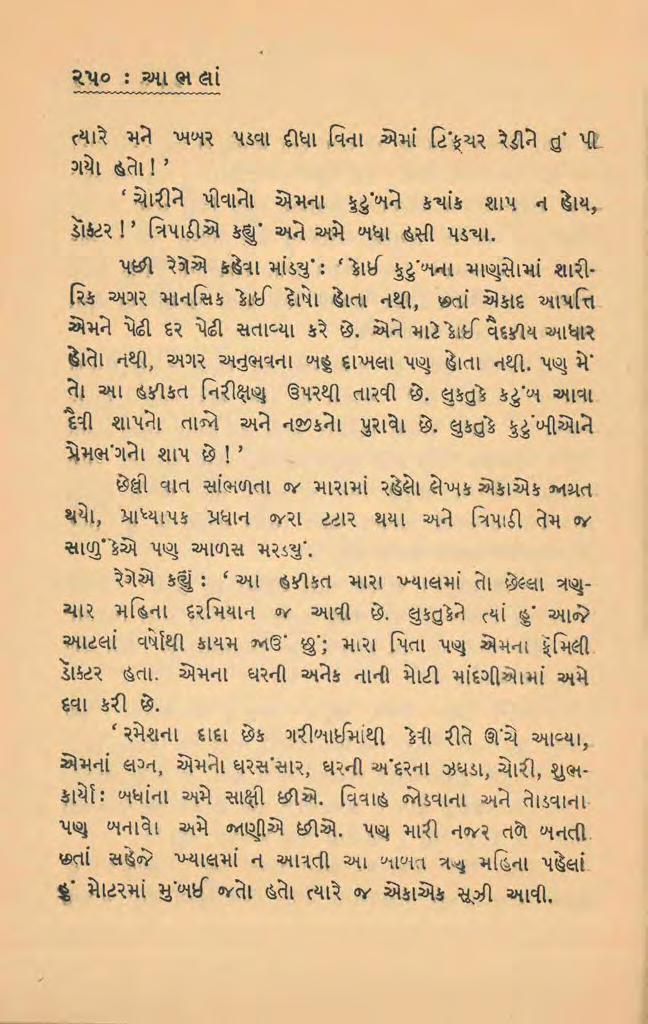 ૨૫૦ : આ ભ લાં
ત્યારે મને ખબર પડવા દીધા વિના એમાં ટિંક્ચર રેડીને તું પી
ગયો હતો ! ’
‘ ચોરીને પીવાનો એમના કુટુંબને ક્યાંક શાપ ન હોય,
ડૉક્ટર ! ’ ત્રિપાઠીએ કહ્યું અને અમે બધા હસી પડયા.
પછી રેગેએ કહેવા માંડયું : ‘ કોઈ કુટુંબના માણસોમાં શારી-
રિક અગર માનસિક કોઈ દોષો હોતા નથી, છતાં એકાદ આપત્તિ
એમને પેઢી દર પેઢી સતાવ્યા કરે છે. એને માટે કોઈ વૈદકીય આધાર
હોતો નથી, અગર અનુભવના બહુ દાખલા પણ હોતા નથી. પણ મેં
તો આ હકીકત નિરીક્ષણ ઉપરથી તારવી છે. લુકતુકે કટુંબ આવા
દૈવી શાપનો તાજો અને નજીકનો પુરાવો છે. લુકતુકે કુટુંબીઓને
પ્રેમભંગનો શાપ છે ! ’
છેલ્લી વાત સાંભળતા જ મારામાં રહેલો લેખક એકાએક જાગ્રત
થયો, પ્રાધ્યાપક પ્રધાન જરા ટટાર થયા અને ત્રિપાઠી તેમ જ
સાળુંકેએ પણ આળસ મરડયું.
રેગેએ કહ્યું : ‘ આ હકીકત મારા ખ્યાલમાં તો છેલ્લા ત્રણ-
ચાર મહિના દરમિયાન જ આવી છે. લુકતુકેને ત્યાં હું આજે
આટલાં વર્ષોથી કાયમ જાઉં છું; મારા પિતા પણ એમના ફૅમિલી
ડૉક્ટર હતા. એમના ઘરની અનેક નાની મોટી માંદગીઓમાં અમે
દવા કરી છે.
‘ રમેશના દાદા છેક ગરીબાઈમાંથી કેવી રીતે ઊંચે આવ્યા,
એમનાં લગ્ન, એમનો ઘરસંસાર, ઘરની અંદરના ઝઘડા, ચોરી, શુભ-
કાર્યો : બધાંના અમે સાક્ષી છીએ. વિવાહ જોડવાના અને તોડવાના
પણ બનાવો અમે જાણીએ છીએ. પણ મારી નજર તળે બનતી
છતાં સહેજે ખ્યાલમાં ન આવતી આ બાબત ત્રણ મહિના પહેલાં
હું મોટરમાં મુંબઈ જતો હતો ત્યારે જ એકાએક સૂઝી આવી.